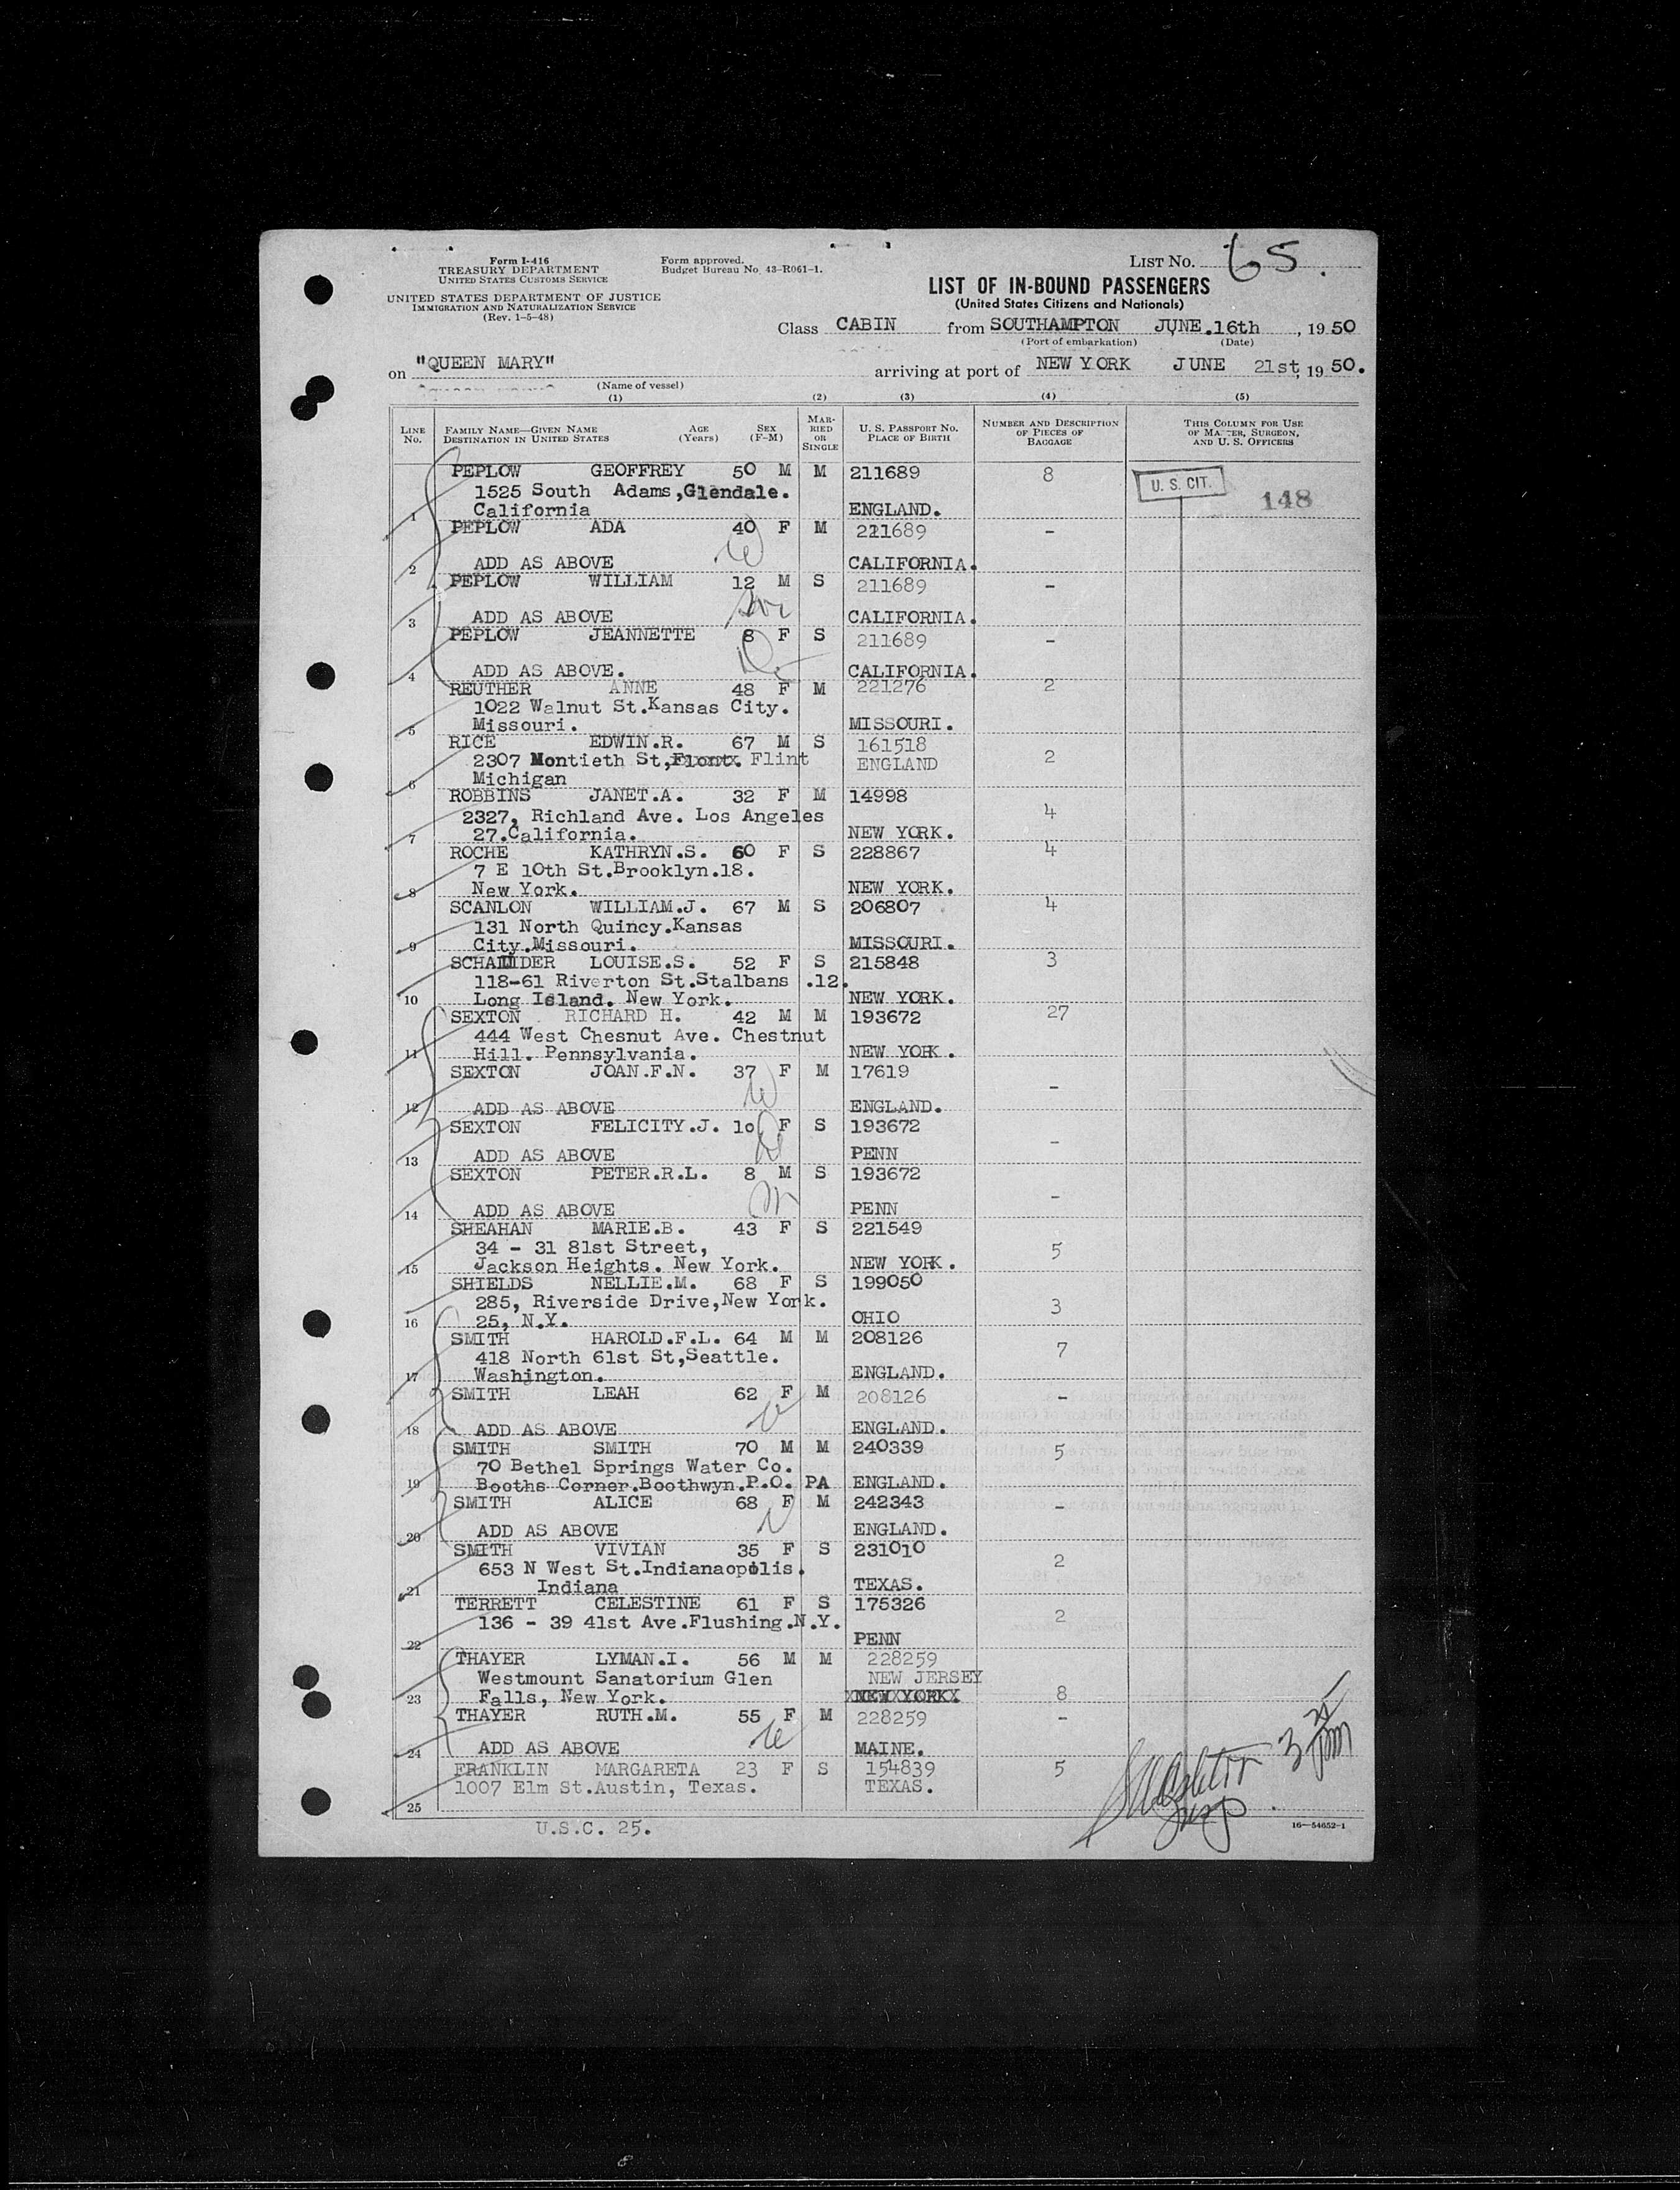 Form I-416
TREASURY DEPARTMENT
UNITED STATES CUSTOMS SERVICE
UNITED STATES DEPARTMENT OF JUSTICE
IMMIGRATION AND NATURALIZATION SERVICE
(Rev. 1-5-48)
Form approved.
Budget Bureau No. 43-R061-1.
LIST NO. 65.
LIST OF IN-BOUND PASSENGERS
(United States Citizens and Nationals)
Class CABIN from SOUTHAMPTON JUNE.16th, 1950
(Port of embarkation) (Date)
on "QUEEN MARY" arriving at port of NEW YORK JUNE 21st, 1950.
(Name of vessel)
(1) (2) (3) (4) (5)
LINE No. FAMILY NAME—GIVEN NAME DESTINATION IN UNITED STATES AGE (Years) SEX (F-M) MARRIED OR SINGLE U. S. PASSPORT NO. PLACE OF BIRTH NUMBER AND DESCRIPTION OF PIECES OF BAGGAGE THIS COLUMN FOR USE OF MASTER, SURGEON, AND U. S. OFFICERS
PEPLOW GEOFFREY 50 M M 211689 8 U. S. CIT. 148
1525 South Adams,Glendale.
1 California ENGLAND.
PEPLOW ADA 40 F M 221689 -
2 ADD AS ABOVE CALIFORNIA.
PEPLOW WILLIAM 12 M S 211689 -
3 ADD AS ABOVE CALIFORNIA.
PEPLOW JEANNETTE 8 F S 211689 -
4 ADD AS ABOVE. CALIFORNIA.
REUTHER ANNE 48 F M 221276 2
1022 Walnut St.Kansas City.
5 Missouri. MISSOURI.
RICE EDWIN.R. 67 M S 161518
2307 Montieth St, Flint ENGLAND 2
6 Michigan
ROBBINS JANET.A. 32 F M 14998
2327, Richland Ave. Los Angeles 4
7 27.California. NEW YORK.
ROCHE KATHRYN.S. 60 F S 228867 4
7 E 10th St.Brooklyn.18.
8 New York. NEW YORK.
SCANLON WILLIAM.J. 67 M S 206807 4
131 North Quincy.Kansas
9 City.Missouri. MISSOURI.
LOUISE.S. 52 F S 215848 3
118-61 Riverton St.Stalbans .12.
10 Long Island. New York. NEW YORK.
SEXTON RICHARD H. 42 M M 193672 27
444 West Chesnut Ave. Chestnut
11 Hill. Pennsylvania. NEW YORK.
SEXTON JOAN.F.N. 37 F M 17619 -
12 ADD AS ABOVE ENGLAND.
SEXTON FELICITY.J. 10 F S 193672 -
13 ADD AS ABOVE PENN
SEXTON PETER.R.L. 8 M S 193672 -
14 ADD AS ABOVE PENN
SHEAHAN MARIE.B. 43 F S 221549
34 - 31 81st Street, 5
15 Jackson Heights. New York. NEW YORK.
SHIELDS NELLIE.M. 68 F S 199050
285, Riverside Drive,New York. 3
16 25, N.Y. OHIO
SMITH HAROLD.F.L. 64 M M 208126
418 North 61st St,Seattle. 7
17 Washington. ENGLAND.
SMITH LEAH 62 F M 208126 -
18 ADD AS ABOVE ENGLAND.
SMITH SMITH 70 M M 240339 5
70 Bethel Springs Water Co.
19 Booths Corner.Boothwyn.P.O. PA ENGLAND.
SMITH ALICE 68 F M 242343 -
20 ADD AS ABOVE ENGLAND.
SMITH VIVIAN 35 F S 231010
653 N West St.Indianaopolis. 2
21 Indiana TEXAS.
TERRETT CELESTINE 61 F S 175326
136 - 39 41st Ave.Flushing.N.Y. 2
22 PENN
THAYER LYMAN.I. 56 M M 228259
Westmount Sanatorium Glen NEW JERSEY
23 Falls, New York. NEW YORK 8
THAYER RUTH.M. 55 F M 228259 -
24 ADD AS ABOVE MAINE.
FRANKLIN MARGARETA 23 F S 154839 5
1007 Elm St.Austin, Texas. TEXAS.
25
U.S.C. 25.
16—54652-1